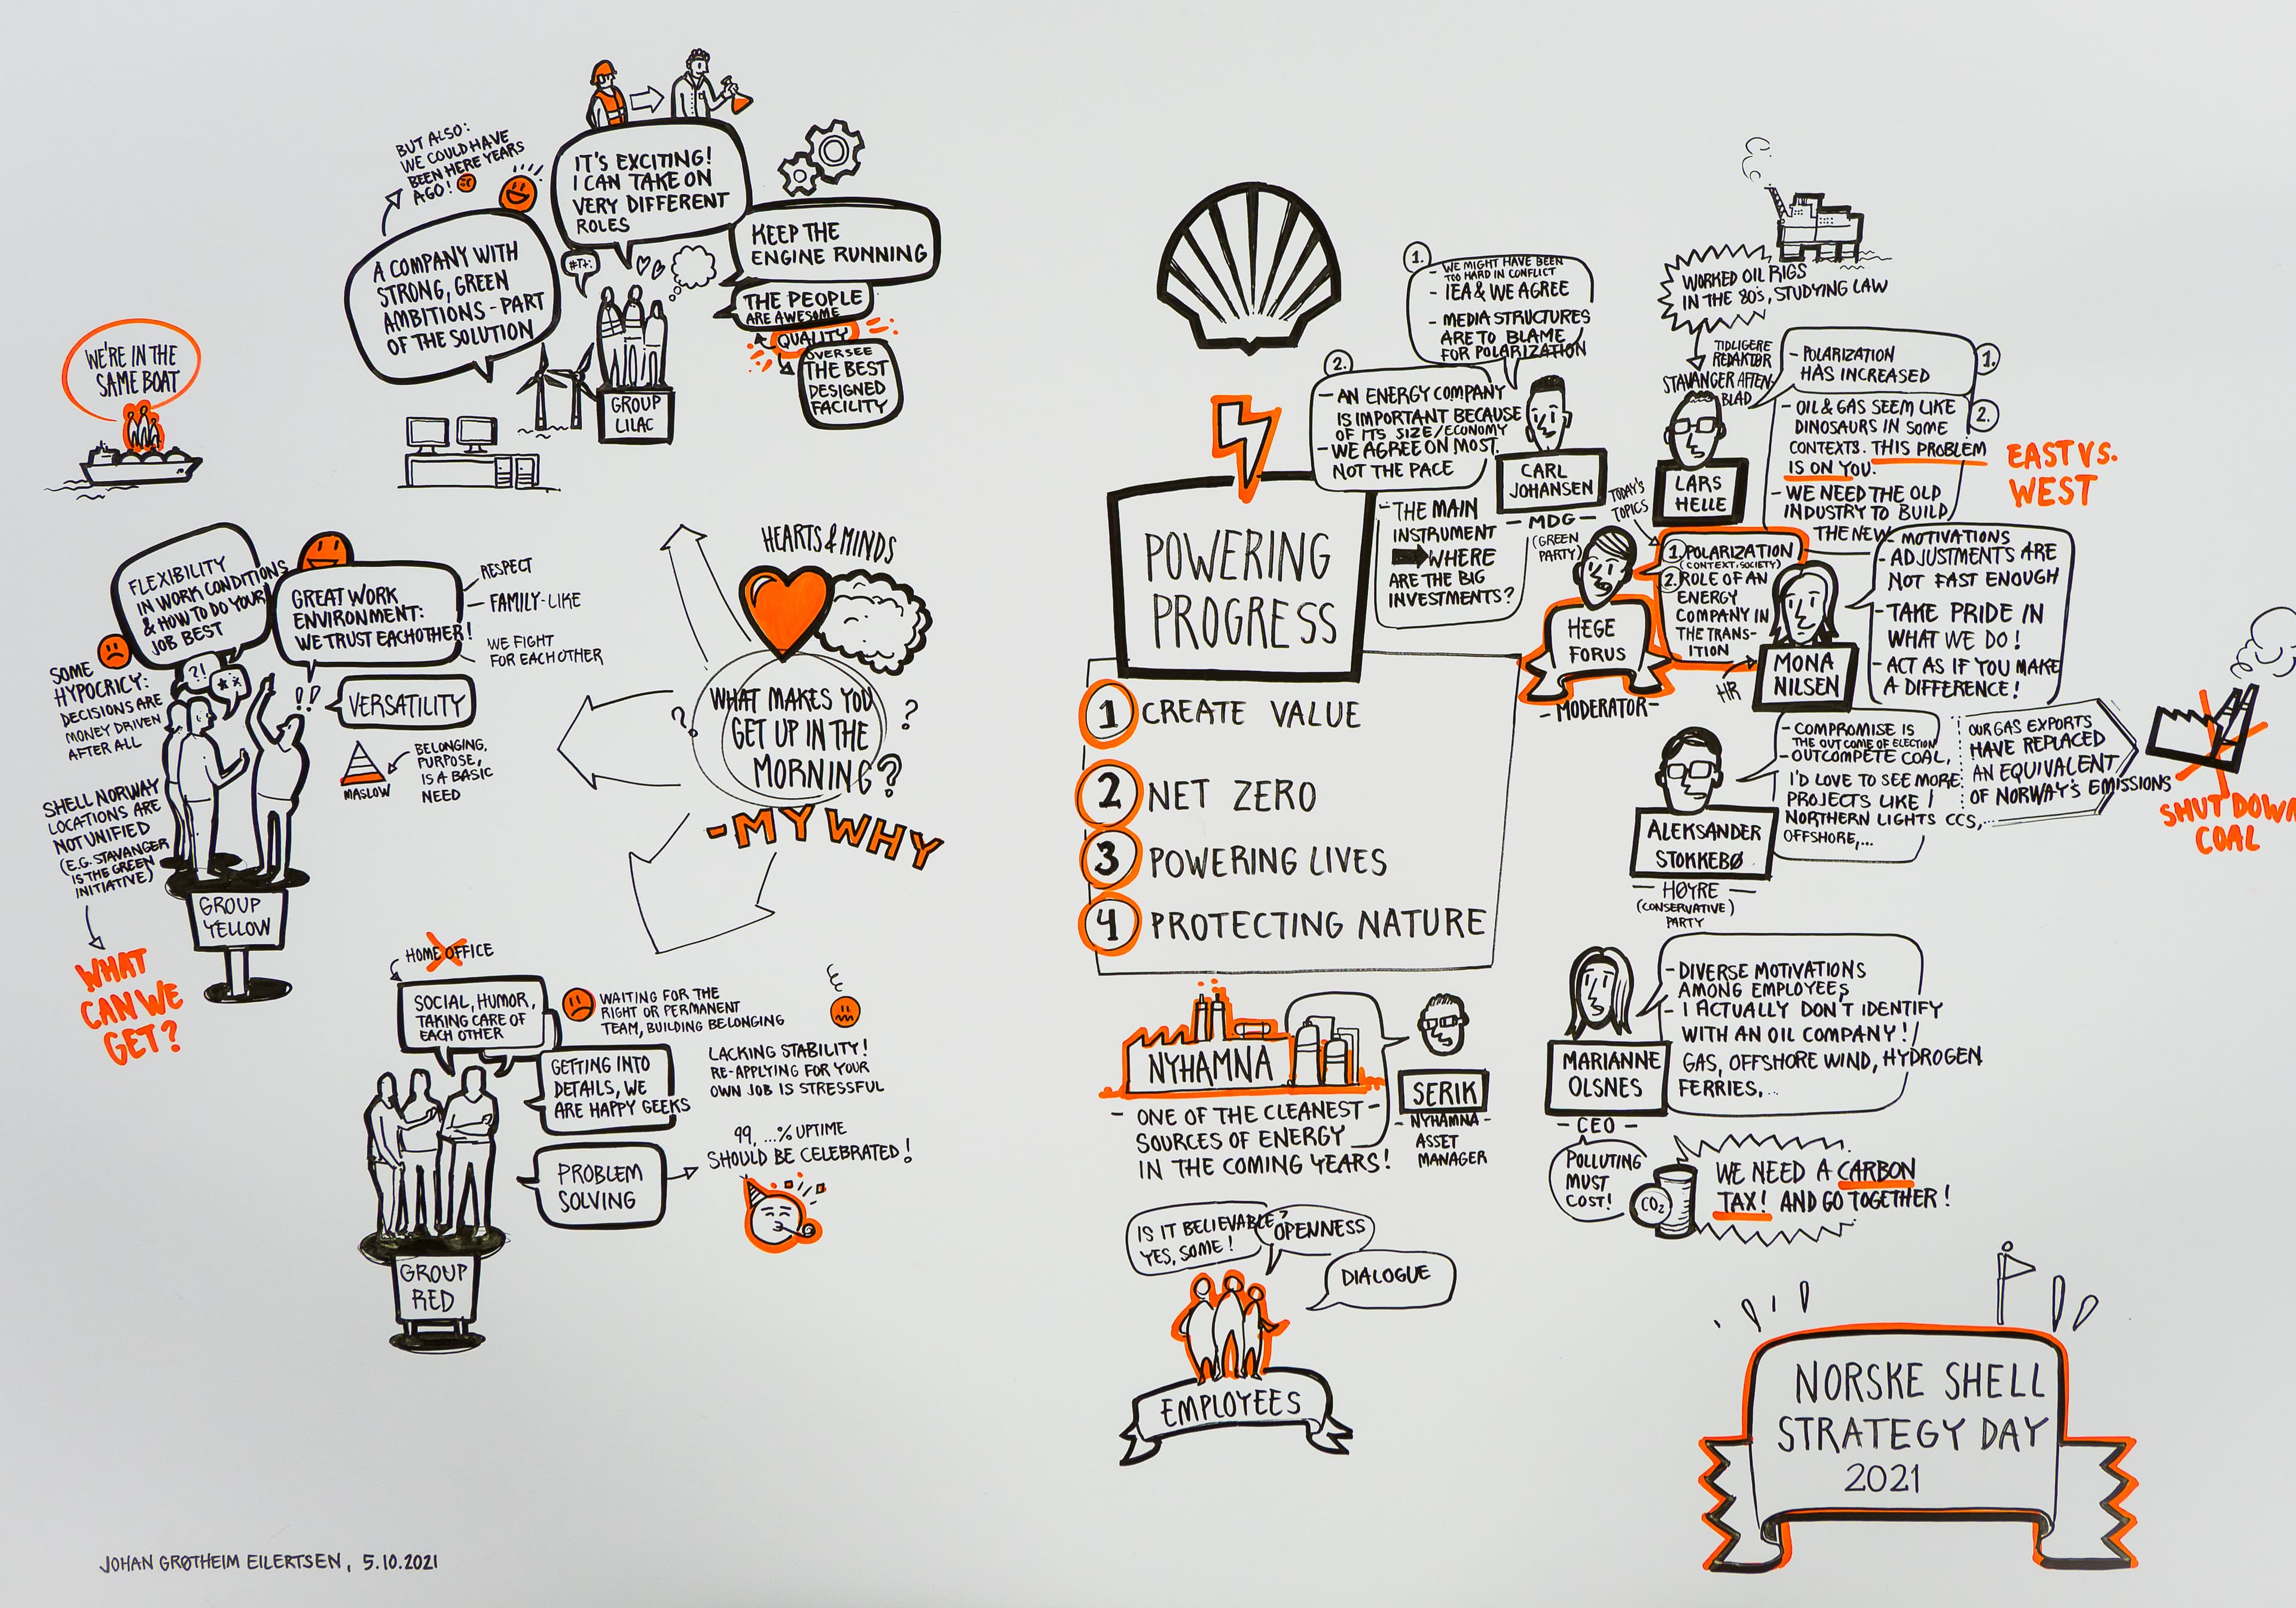 BUT ALSO:
WE COULD HAVE
BEEN HERE YEARS
AGO!
IT'S EXCITING!
I CAN TAKE ON
VERY DIFFERENT
ROLES
A COMPANY WITH
STRONG, GREEN
AMBITIONS - PART
OF THE SOLUTION
#T+:
KEEP THE
ENGINE RUNNING
THE PEOPLE
ARE AWESOME
QUALITY
OVERSEE
THE BEST
DESIGNED
FACILITY
GROUP
LILAC
WE'RE IN THE
SAME BOAT
FLEXIBILITY
IN WORK CONDITIONS
& HOW TO DO YOUR
JOB BEST
GREAT WORK
ENVIRONMENT:
WE TRUST EACHOTHER!
RESPECT
- FAMILY-LIKE
WE FIGHT
FOR EACHOTHER
?!
!!
VERSATILITY
BELONGING,
PURPOSE,
IS A BASIC
NEED
MASLOW
SOME
HYPOCRICY:
DECISIONS ARE
MONEY DRIVEN
AFTER ALL
SHELL NORWAY
LOCATIONS ARE
NOT UNIFIED
(E.G. STAVANGER
IS THE GREEN
INITIATIVE)
WHAT
CAN WE
GET?
GROUP
YELLOW
HEARTS & MINDS
WHAT MAKES YOU
GET UP IN THE
MORNING?
? ? ?
- MY WHY
HOME OFFICE
SOCIAL, HUMOR,
TAKING CARE OF
EACH OTHER
WAITING FOR THE
RIGHT OR PERMANENT
TEAM, BUILDING BELONGING
GETTING INTO
DETAILS, WE
ARE HAPPY GEEKS
LACKING STABILITY!
RE-APPLYING FOR YOUR
OWN JOB IS STRESSFUL
PROBLEM
SOLVING
99, ...% UPTIME
SHOULD BE CELEBRATED!
GROUP
RED
JOHAN GRØTHEIM EILERTSEN, 5.10.2021
POWERING
PROGRESS
1 CREATE VALUE
2 NET ZERO
3 POWERING LIVES
4 PROTECTING NATURE
1.
- WE MIGHT HAVE BEEN
TOO HARD IN CONFLICT
- IEA & WE AGREE
- MEDIA STRUCTURES
ARE TO BLAME
FOR POLARIZATION
2.
- AN ENERGY COMPANY
IS IMPORTANT BECAUSE
OF ITS SIZE/ECONOMY
- WE AGREE ON MOST.
NOT THE PACE
- THE MAIN
INSTRUMENT
WHERE
ARE THE BIG
INVESTMENTS?
CARL
JOHANSEN
- MDG -
(GREEN
PARTY)
WORKED OIL RIGS
IN THE 80's, STUDYING LAW
TIDLIGERE
REDAKTØR
STAVANGER AFTEN-
BLAD
LARS
HELLE
- POLARIZATION
HAS INCREASED
1.
- OIL & GAS SEEM LIKE
DINOSAURS IN SOME
CONTEXTS. THIS PROBLEM
IS ON YOU.
- WE NEED THE OLD
INDUSTRY TO BUILD
THE NEW
2.
EAST VS.
WEST
TODAY'S
TOPICS
1. POLARIZATION
(CONTEXT, SOCIETY)
2. ROLE OF AN
ENERGY
COMPANY IN
THE TRANS-
ITION
HEGE
FORUS
- MODERATOR -
HR
MONA
NILSEN
- MOTIVATIONS
- ADJUSTMENTS ARE
NOT FAST ENOUGH
- TAKE PRIDE IN
WHAT WE DO!
- ACT AS IF YOU MAKE
A DIFFERENCE!
ALEKSANDER
STOKKEBØ
- HØYRE -
(CONSERVATIVE)
PARTY
- COMPROMISE IS
THE OUTCOME OF ELECTION
- OUTCOMPETE COAL,
I'D LOVE TO SEE MORE
PROJECTS LIKE
NORTHERN LIGHTS CCS,...
OFFSHORE,...
OUR GAS EXPORTS
HAVE REPLACED
AN EQUIVALENT
OF NORWAY'S EMISSIONS
SHUT DOWN
COAL
NYHAMNA
- ONE OF THE CLEANEST -
SOURCES OF ENERGY
IN THE COMING YEARS!
SERIK
- NYHAMNA -
ASSET
MANAGER
MARIANNE
OLSNES
- CEO -
- DIVERSE MOTIVATIONS
AMONG EMPLOYEES
- I ACTUALLY DON'T IDENTIFY
WITH AN OIL COMPANY!
GAS, OFFSHORE WIND, HYDROGEN
FERRIES,...
POLLUTING
MUST
COST!
CO2
WE NEED A CARBON
TAX! AND GO TOGETHER!
IS IT BELIEVABLE?
YES, SOME!
OPENNESS
DIALOGUE
EMPLOYEES
NORSKE SHELL
STRATEGY DAY
2021